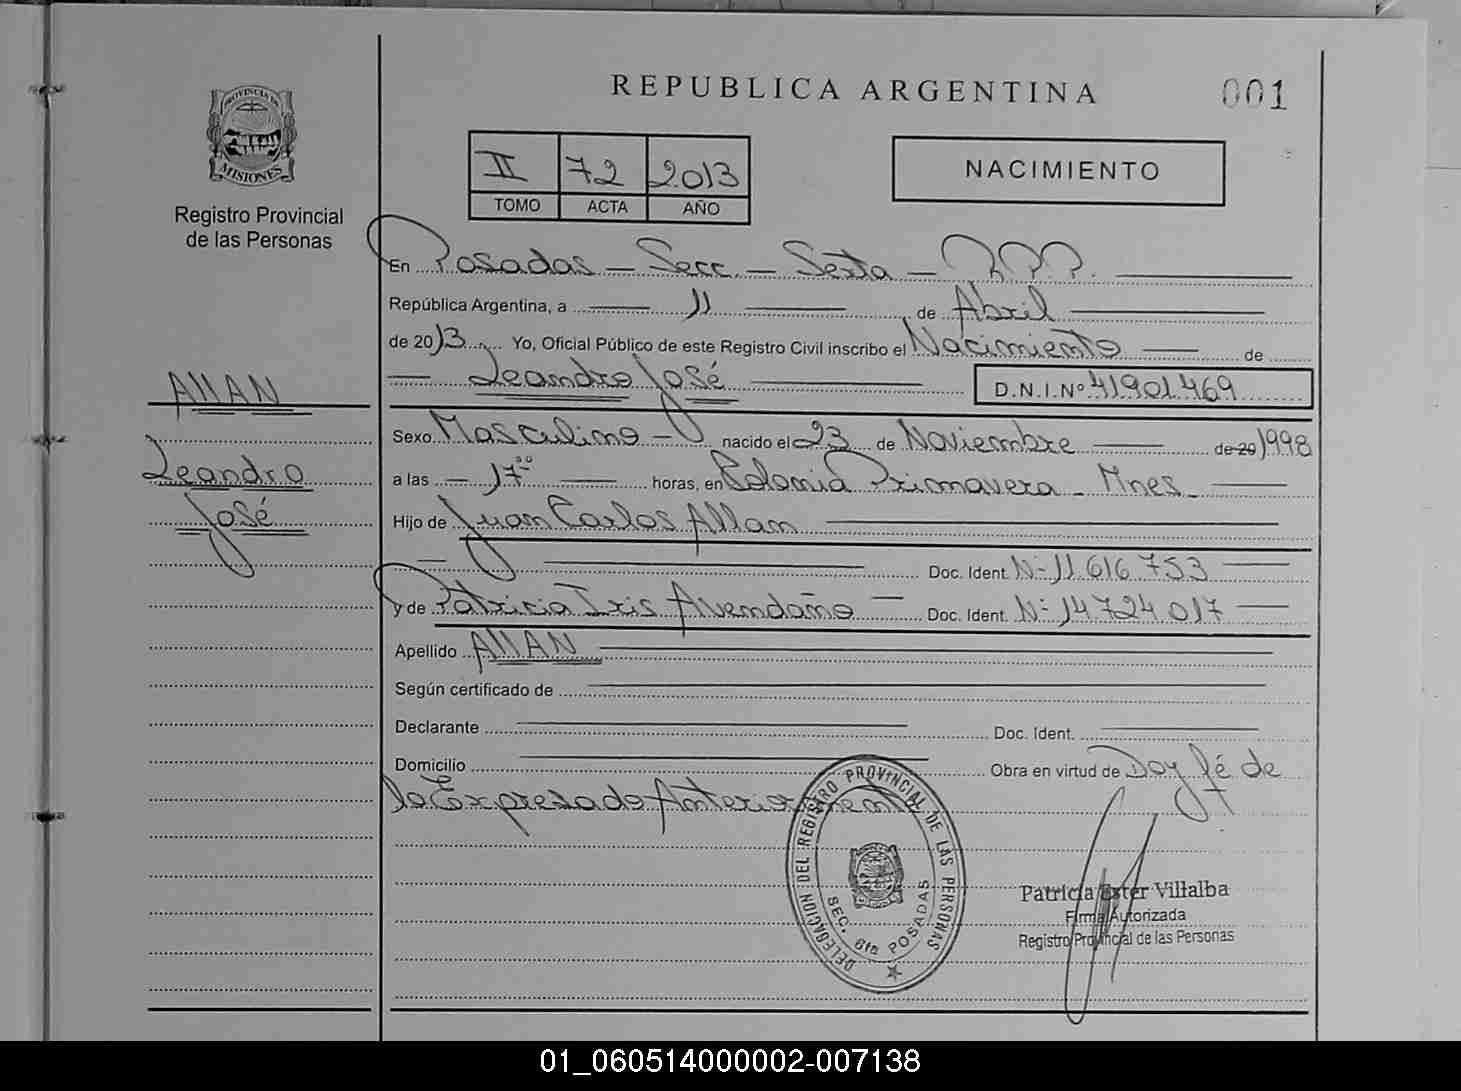 REPUBLICA ARGENTINA
001
PROVINCIA DE
MISIONES
Registro Provincial
de las Personas
II 72 2013
TOMO ACTA AÑO
NACIMIENTO
En Posadas - Secc - Sexta -
República Argentina, a 11 de Abril
de 2013 Yo, Oficial Público de este Registro Civil inscribo el Nacimiento de
Leandro José D.N.I.Nº 41901469
Sexo Masculino - nacido el 23 de Noviembre de 20 1998
a las - 17⁰⁰ horas, en Colonia Primavera - Mnes -
Hijo de Juan Carlos Allan
Doc. Ident. Nº 11 616 753
y de Patricia Iris Avendaño Doc. Ident. Nº 14724017
Apellido Allan
Según certificado de
Declarante Doc. Ident.
Domicilio Obra en virtud de Doy fé de
lo Expresado Anteriormente
Allan
Leandro
José
DELEGACION DEL REGISTRO PROVINCIAL DE LAS PERSONAS
SEC. 6ta POSADAS
Patricia Ester Villalba
Firma Autorizada
Registro Provincial de las Personas
01_060514000002-007138